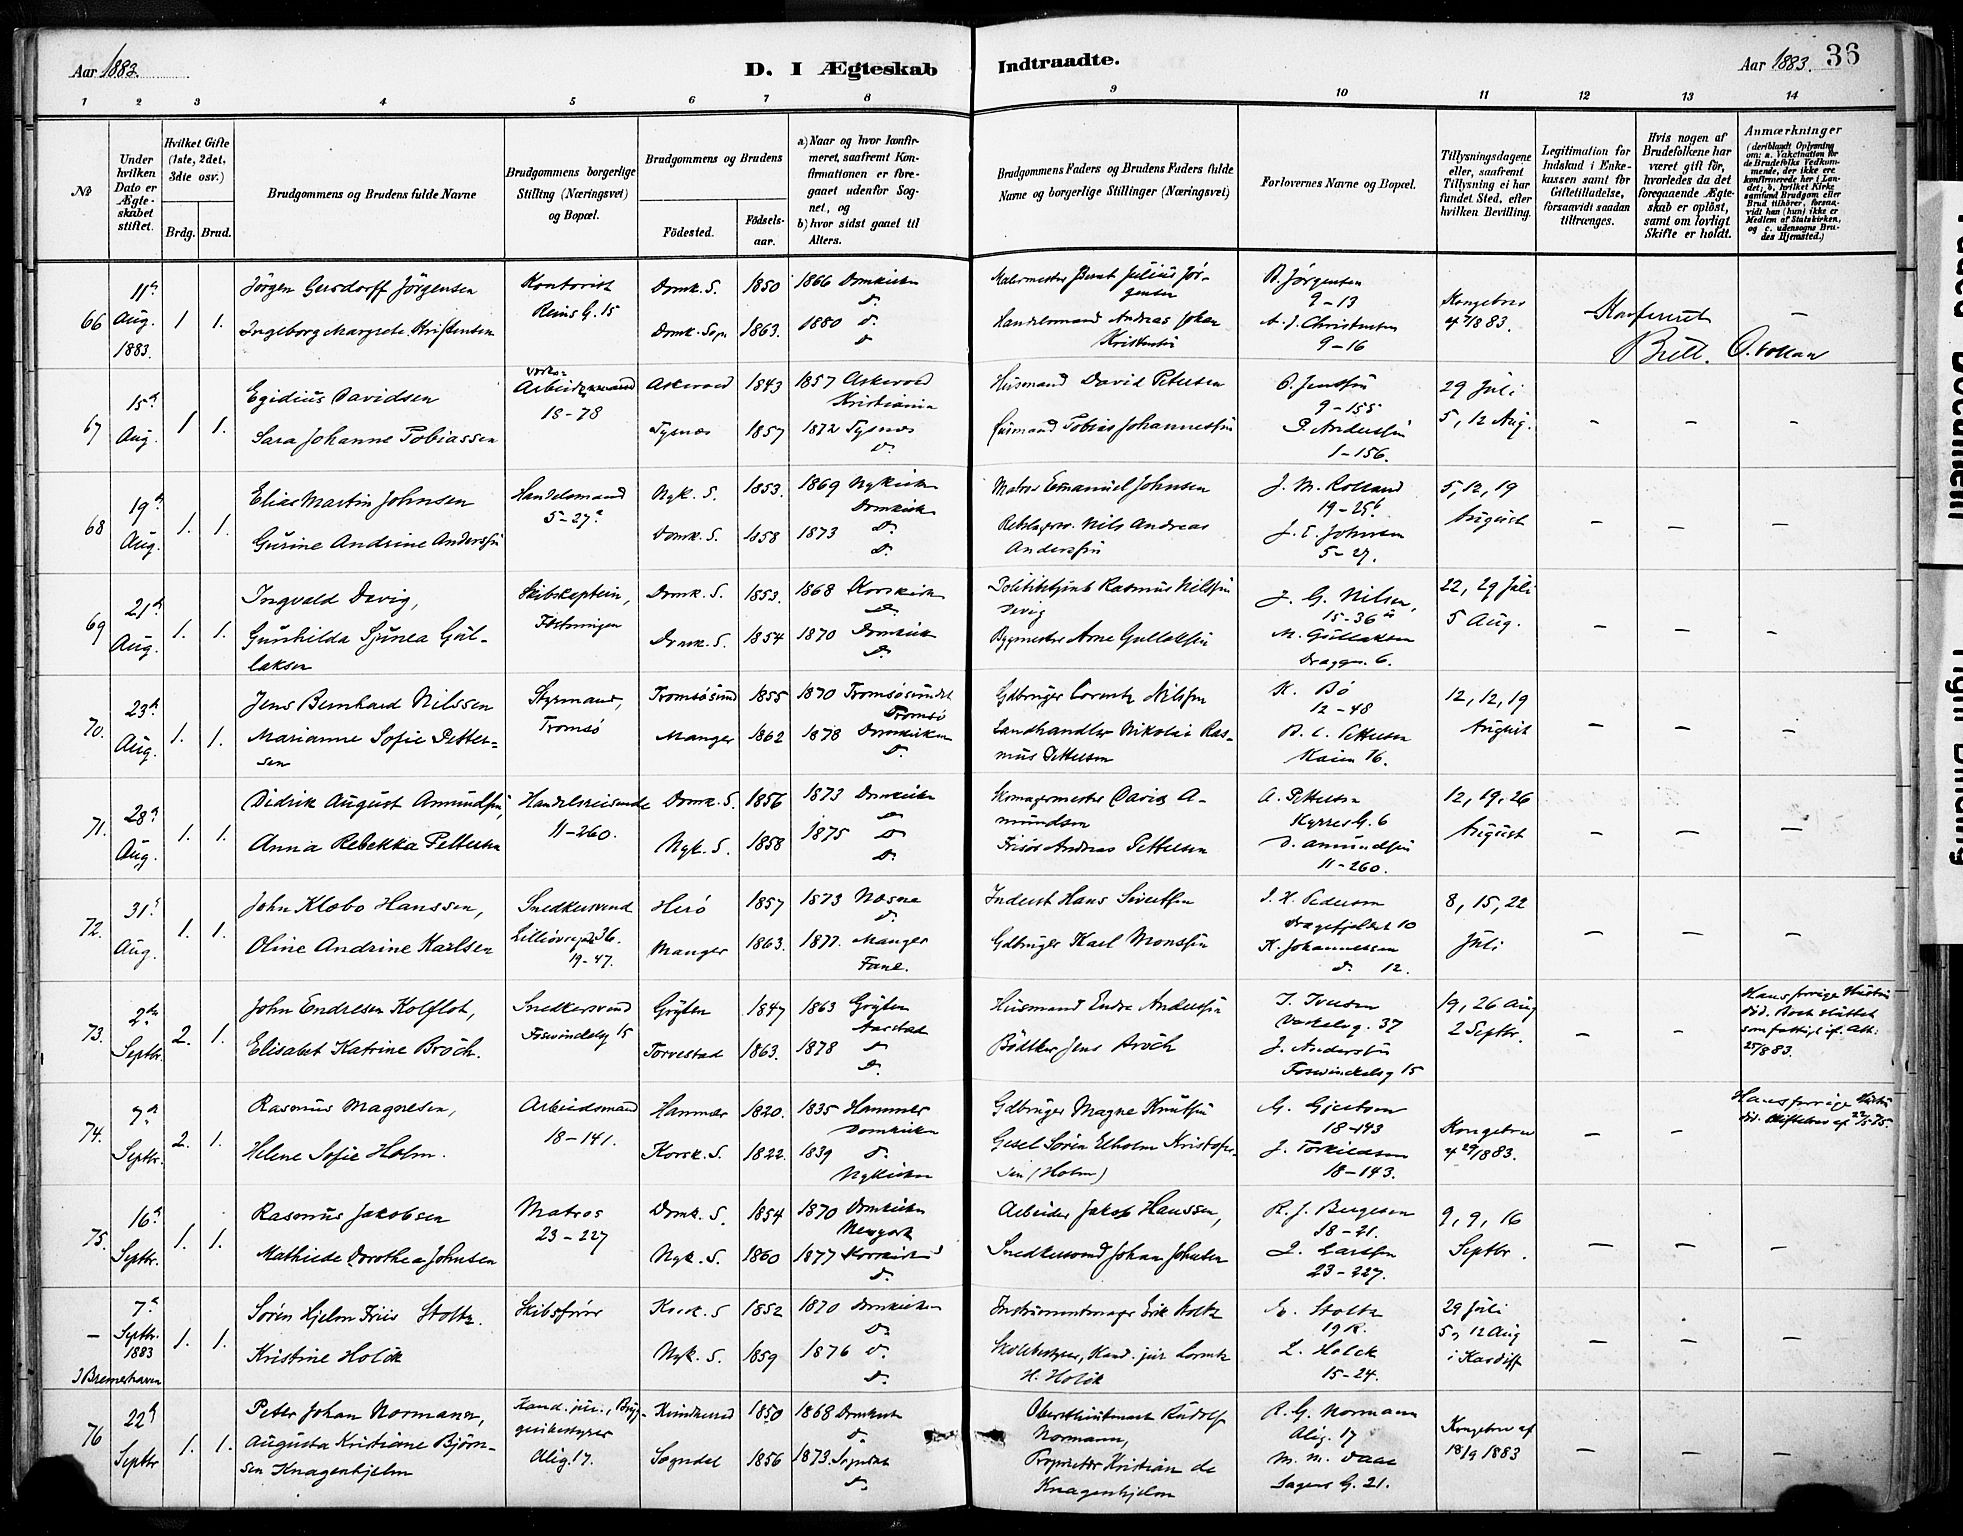 Aar 1883.
D. I Ægteskab Indtraadte.
Aar 1883. 36
1 2 3 4 5 6 7 8 9 10 11 12 13 14
No
Under hvilken Dato er Ægteskabet stiftet.
Hvilket Gifte (1ste, 2det, 3die osv.)
Brdg. Brud.
Brudgommens og Brudens fulde Navne
Brudgommens borgerlige Stilling (Næringsvei) og Bopæl.
Brudgommens og Brudens
Fødested. Fødselsaar.
a) Naar og hvor konfirmeret, saafremt Konfirmationen er foregaaet udenfor Sognet, og
b) hvor sidst gaaet til Alters.
Brudgommens Faders og Brudens Faders fulde Navne og borgerlige Stillinger (Næringsvei)
Forlovernes Navne og Bopæl.
Tillysningsdagene eller, saafremt Tillysning ei har fundet Sted, efter hvilken Bevilling.
Legitimation for Indskud i Enkekassen samt for Giftetilladelse, forsaavidt saadan tiltrænges.
Hvis nogen af Brudefolkene har været gift før, hvorledes da det foregaaende Ægteskab er opløst, samt om lovligt Skifte er holdt.
Anmærkninger
(deriblandt Oplysning om: a. Vakcination for de Brudefolks Vedkommende, der ikke ere konfirmerede her i Landet; b. hvilket Kirkesamfund Brudgom eller Brud tilhører, forsaavidt han (hun) ikke er Medlem af Statskirken, og c. udensogns Brudes Hjemsted.)
66 11te Aug. 1883. 1 1.
Jörgen Gersdorff Jörgensen
Ingeborg Margrete Kristensen
Kontorist
Reins G. 15
Domk. S. 1850 1866 Domkirken
do
Domk. Sogn 1863. 1880 do
do
Malermester Bernt Julius Jörgensen
Handelsmand Andreas Johan Kristensen
B. Jörgensen
9-13
A. J. Christensen
9-16
Kongebrev af /8 83.
Konfereret
Britt. O. Vollan
67 15de Aug. 1 1.
Egidius Davidsen
Sara Johanne Tobiassen
Arbeidsmand
18-78
Askevold 1843 1857 Askevold
Kristiania
Tysnæs 1857 1872 Tysnæs
do
Husmand David Petersen
Husmand Tobias Johannessen
O. Jenssen
9-155
P. Anderssen
1-156.
29 Juli
5, 12 Aug.
68 19de Aug. 1. 1.
Elias Martin Johnsen
Gurine Andrine Anderssen
Handelsmand
5-27a
Nyk. S. 1853. 1869 Nykirken
Domkirk
Domk. S. 1858 1873 do
do
Matros Emanuel Johnsen
Rebslagersv. Nils Andreas Anderssen
J. M. Rolland
19-25b
J. E. Johnsen
5-27.
5, 12, 19
August
69 21de Aug. 1. 1.
Ingvald Devig,
Gunhilda Sjunea Gullaksen
Skibskaptein,
Domk. S. 1853. 1868 Korskirken
do
Domk. S. 1854 1870 Domkirk
do
Politibetjent Rasmus Nilssen Devig
Bygmester Arne Gullaksen
J. G. Nilsen,
15-36a
M. Gullaksen
Dræggen. 6.
22, 29 Juli
5 Aug.
70. 23de Aug. 1. 1.
Jens Bernhard Nilssen
Marianne Sofie Pettersen
Styrmand,
Tromsö
Tromsösund 1855 1870 Tromsösundet
Tromsö
Manger 1862 1878 Domkirken
do
Gdbruger Lorentz Nilssen
Landhandler Nikolai Rasmus Pettersen
K. Bö
12-48
B. C. Pettersen
Kaien 16.
12, 12, 19
August
71. 28de Aug. 1. 1.
Didrik August Amundsen,
Anna Rebekka Pettersen
Handelsreisende
11-260.
Domk. S. 1856 1873 Domkirken
do
Nyk. S. 1858 1875 do
do
Skomagermester David Amundsen
Frisör Andreas Pettersen
A. Pettersen
Kyrres G. 6
D. Amundsen
11-260.
12, 19, 26
August
72. 31te Aug. 1. 1.
John Klobo Hanssen,
Oline Andrine Karlsen
Snedkersvend
36.
19-47.
Herö 1857 1873 Næsne
do
Manger 1863. 1877. Manger
Fane.
Inderst Hans Sivertsen
Gdbruger Karl Monssen
J. H. Pedersen
Dragefjeldet 10
K. Johannessen
do 12.
8, 15, 22
Juli
73. 2den Septbr. 2. 1.
John Endresen Kolflot,
Elisabet Katrine Broch.
Snedkersvend
15
Grytten 1847 1863 Grytten
Aarstad
Torvestad 1863. 1878 do
do
Husmand Endre Anderssen
Bödker Jens Broch
J. Iversen
37
J. Anderssen
15
19, 26 Aug
2 Septbr.
Hans forrige Hustru död.
25/8 83.
74. 7de Septbr. 2. 1.
Rasmus Magnesen,
Helene Sofie Holm.
Arbeidsmand
18-141.
Hammer 1820. 1835 Hammer
Domkirken
Korsk. S. 1822. 1839 do
Nykirken
Gdbruger Magne Knutsen
Gesel Sören Elholm Kristofersen (Holm)
G. Gjertsen
18-143
J. Torkildsen
18-143.
Kongebrev
af 29/8 83.
Hans forrige Hustru död.
75. 16de Septbr. 1. 1.
Rasmus Jakobsen
Mathilde Dorothea Johnsen
Matros
23-227
Domk. S. 1854 1870 Domkirken
Newyork
Nyk. S. 1860 1877 Korskirken
do
Arbeider Jakob Hanssen,
Snedkersvend Johan Johnsen
R. J. Bergesen
18-21.
L. Larssen
23-227.
9, 9, 16
Septbr.
— 7de Septbr. 1883 I Bremerhaven 1. 1.
Sören Hjelm Friis Stoltz.
Kristine Holck
Skibsförer
Korsk. S 1852 1870 Domkirken
do
Nyk. S. 1859 1876 do
do
Instrumentmager Erik Stoltz
Skolebestyrer, Kand. jur Lorentz H. Holck
E. Stoltz
19 R.
L. Holck
15-24.
29 Juli
5, 12 Aug
i Kardiff
76 22de Septbr 1. 1.
Peter Johan Normann,
Augusta Kristiane Björnsen Knagenhjelm
Kand. jur.,
Alig. 17.
Kvindherred 1850 1868 Domkirk
do
Sogndal 1856 1873. Sogndal
do
Oberstlöitnant Rudolf Normann,
Proprietær Kristian de Knagenhjelm
R. G. Normann
Alig. 17
M. M. Daae
G. 21.
Kongebrev af
18/9 1883